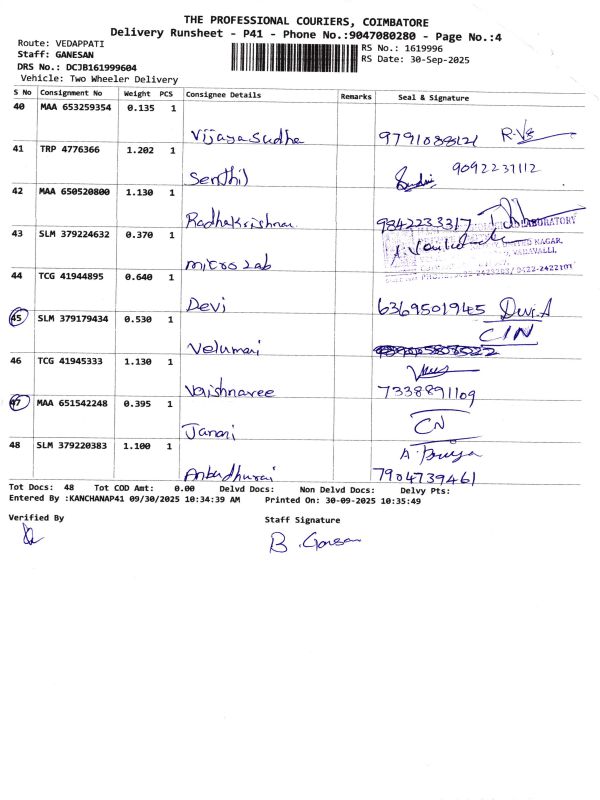 THE PROFESSIONAL COURIERS, COIMBATORE
Delivery Runsheet - P41 - Phone No.:9047080280 - Page No.:4
Route: VEDAPPATI
RS No.: 1619996
Staff: GANESAN
RS Date: 30-Sep-2025
DRS No.: DCJB161999604
Vehicle: Two Wheeler Delivery
S No Consignment No Weight PCS Consignee Details Remarks Seal & Signature
40 MAA 653259354 0.135 1
Vijayasudha 9791088121
41 TRP 4776366 1.202 1
Senthil 9092237112
42 MAA 650520800 1.130 1
Radhakrishnan 9842233317
LABORATORY
43 SLM 379224632 0.370 1
NAGAR,
VANAVALLI,
micro lab
44 TCG 41944895 0.640 1
Devi 6369501945 Devi.A
45 SLM 379179434 0.530 1
CIN
Velumani
46 TCG 41945333 1.130 1
Vaishnavee 7338891109
47 MAA 651542248 0.395 1
Janani CN
48 SLM 379220383 1.100 1
Anbudhurai 7904739461
Tot Docs: 48 Tot COD Amt: 0.00 Delvd Docs: Non Delvd Docs: Delvy Pts:
Entered By :KANCHANAP41 09/30/2025 10:34:39 AM Printed On: 30-09-2025 10:35:49
Verified By Staff Signature
B. Ganesan